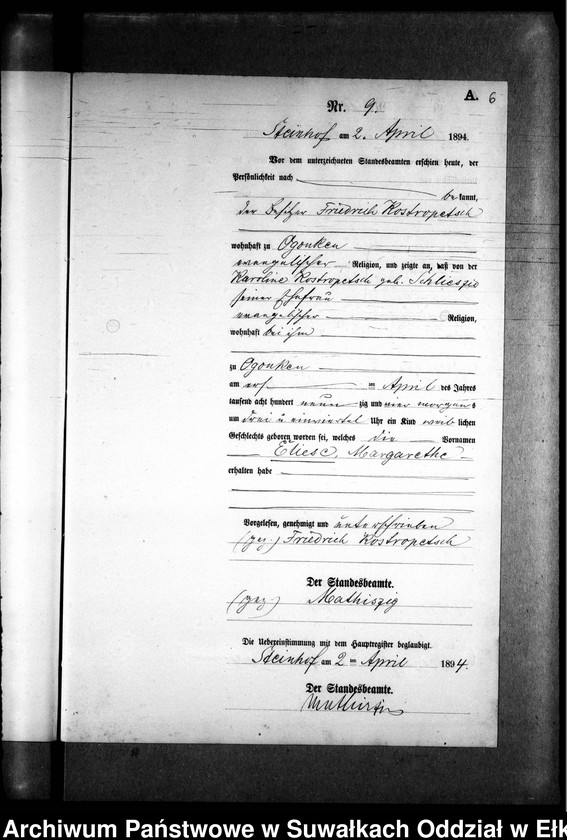 A. 6
Nr. 9.
Steinhof am 2. April 1894.
Vor dem unterzeichneten Standesbeamten erschien heute, der
Persönlichkeit nach
be kannt,
der Besitzer Friedrich Kostropetsch
wohnhaft zu Ogonken
evangelischer Religion, und zeigte an, daß von der
Karoline Kostropetsch geb. Schlieszio
seiner Ehefrau
evangelischer Religion,
wohnhaft bei ihm
zu Ogonken
am ers April des Jahres
tausend acht hundert neun zig und vier morgens
um drei u einviertel Uhr ein Kind weib lichen
Geschlechts geboren worden sei, welches die Vornamen
Eliese, Margarethe
erhalten habe
Vorgelesen, genehmigt und unterschrieben
(gez.) Friedrich Kostropetsch
Der Standesbeamte.
(gez) Mathiszig
Die Uebereinstimmung mit dem Hauptregister beglaubigt.
Steinhof am 2 ten April 1894.
Der Standesbeamte.
Archiwum Państwowe w Suwałkach Oddział w Ełk